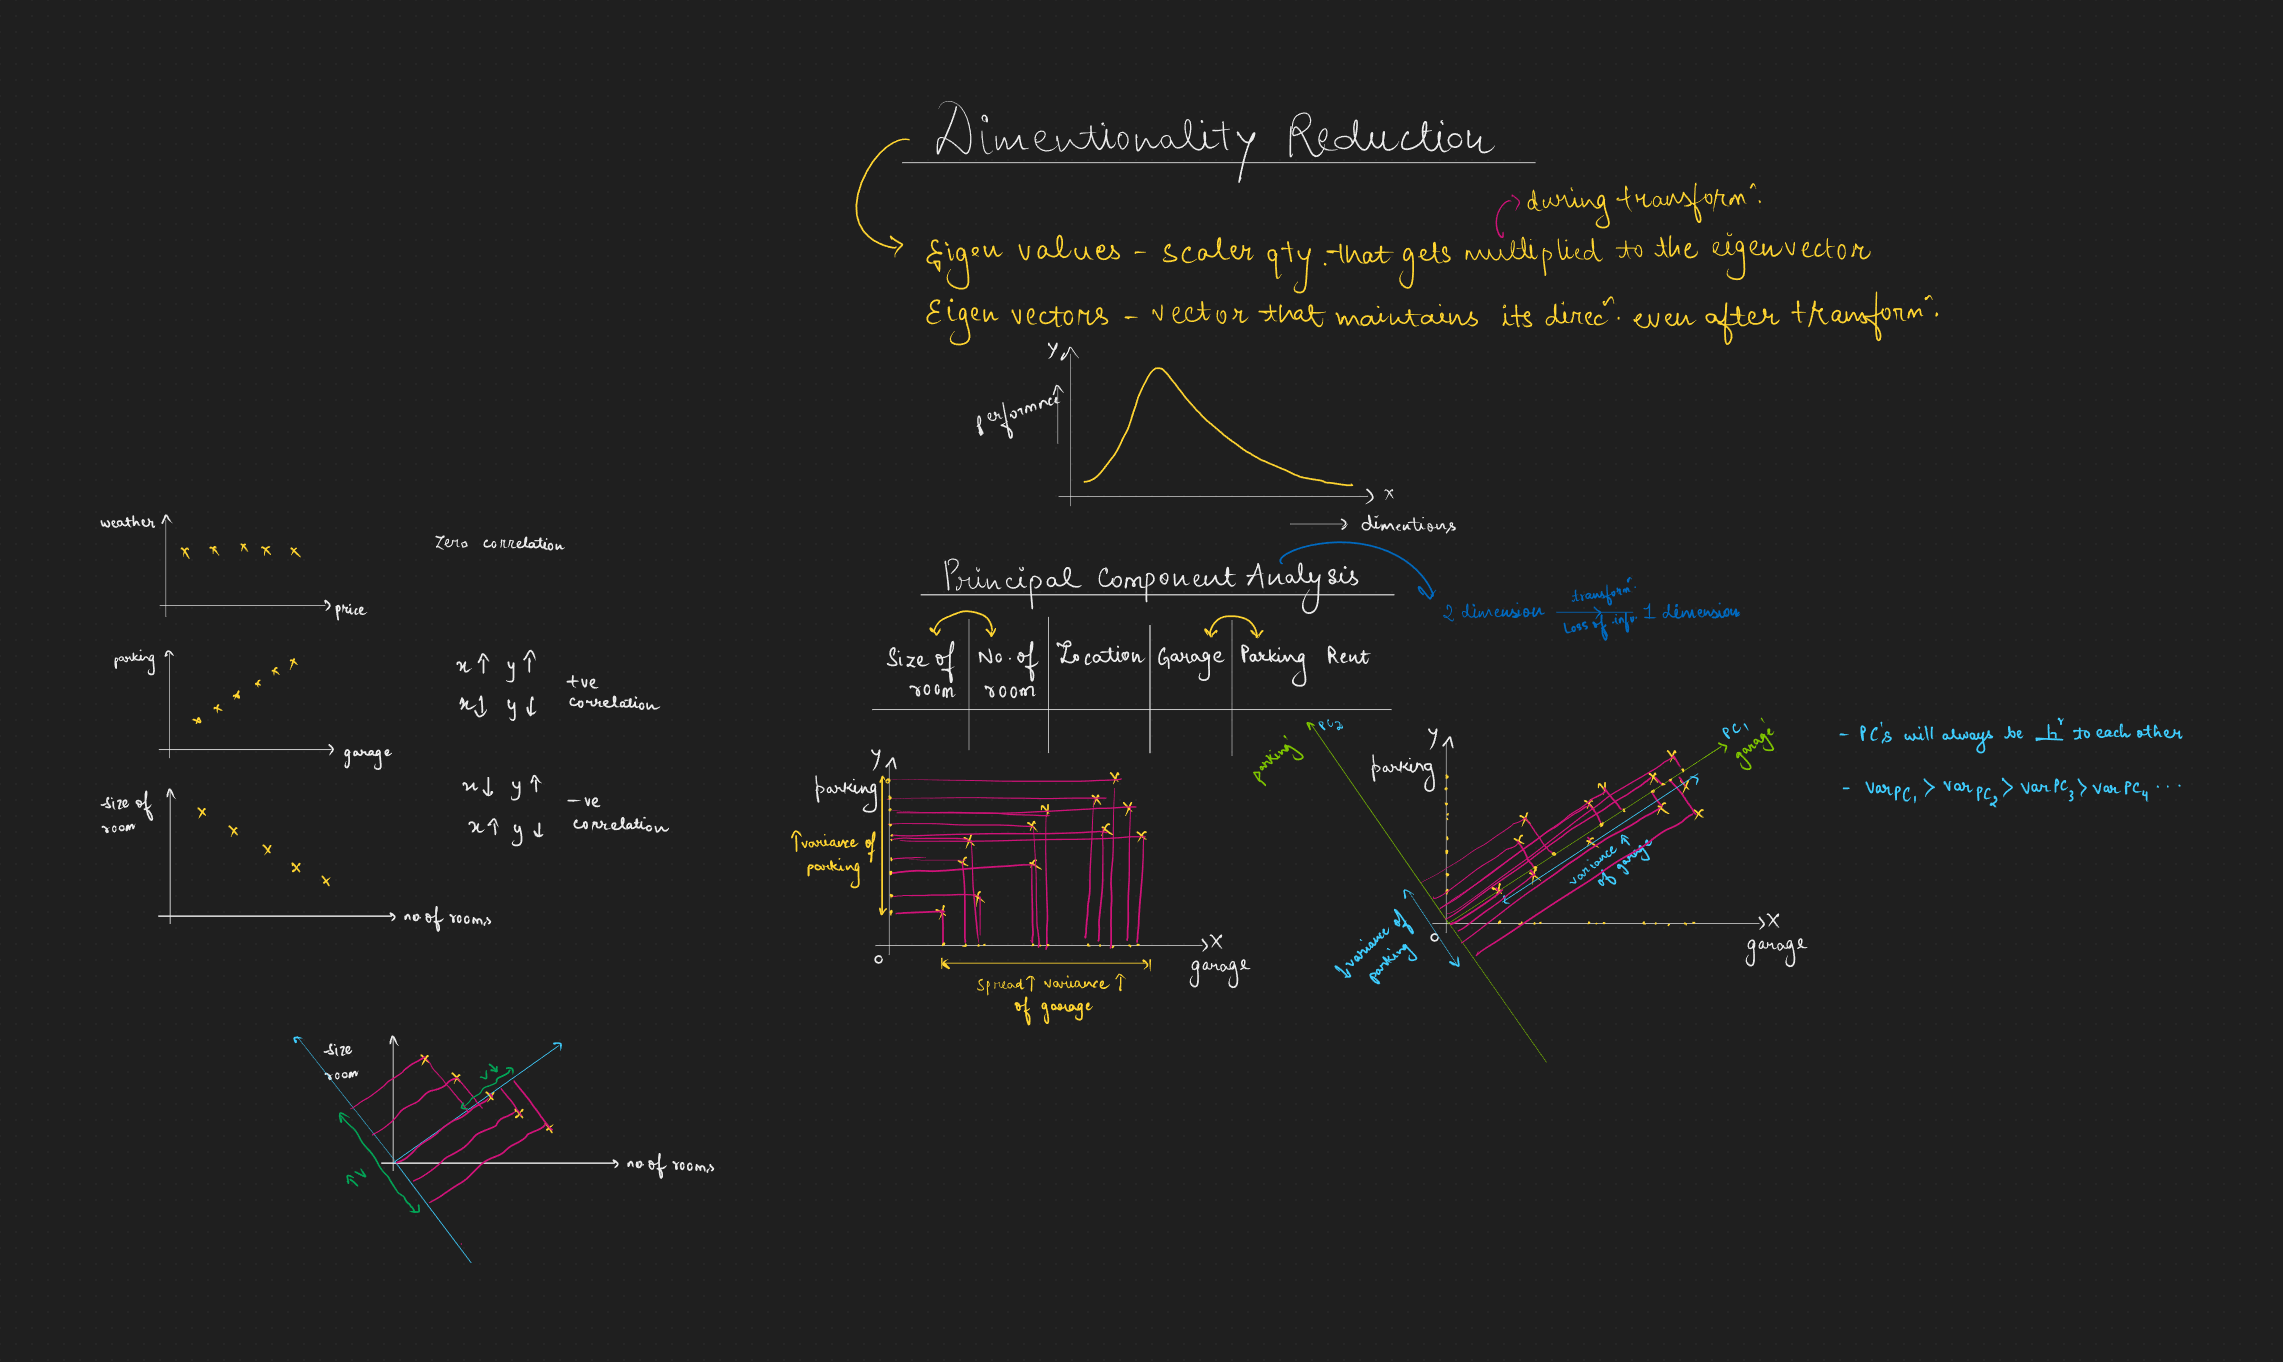 Dimentionality Reduction
during transformⁿ.
Eigen values - scaler qty. that gets multiplied to the eigenvector
Eigen vectors - vector that maintains its direcⁿ. even after transformⁿ.
y
performnce
x
dimentions
weather
price
Zero correlation
parking
garage
x↑ y↑
x↓ y↓
+ve
correlation
size of
room
no of rooms
x↓ y↑
x↑ y↓
-ve
correlation
Principal Component Analysis
2 dimension transformⁿ. 1 dimension
Loss of info.
Size of room | No. of room | Location | Garage | Parking Rent
y
parking
↑variance of
parking
0
X
garage
spread↑ variance↑
of garage
parking'
PC2
y
parking
PC1
garage'
variance ↑
of garage
↓variance of
parking
0
X
garage
- PC's will always be ⊥r to each other
- varPC1 > varPC2 > varPC3 > varPC4 ...
size
room
V↓
↑V
no of rooms